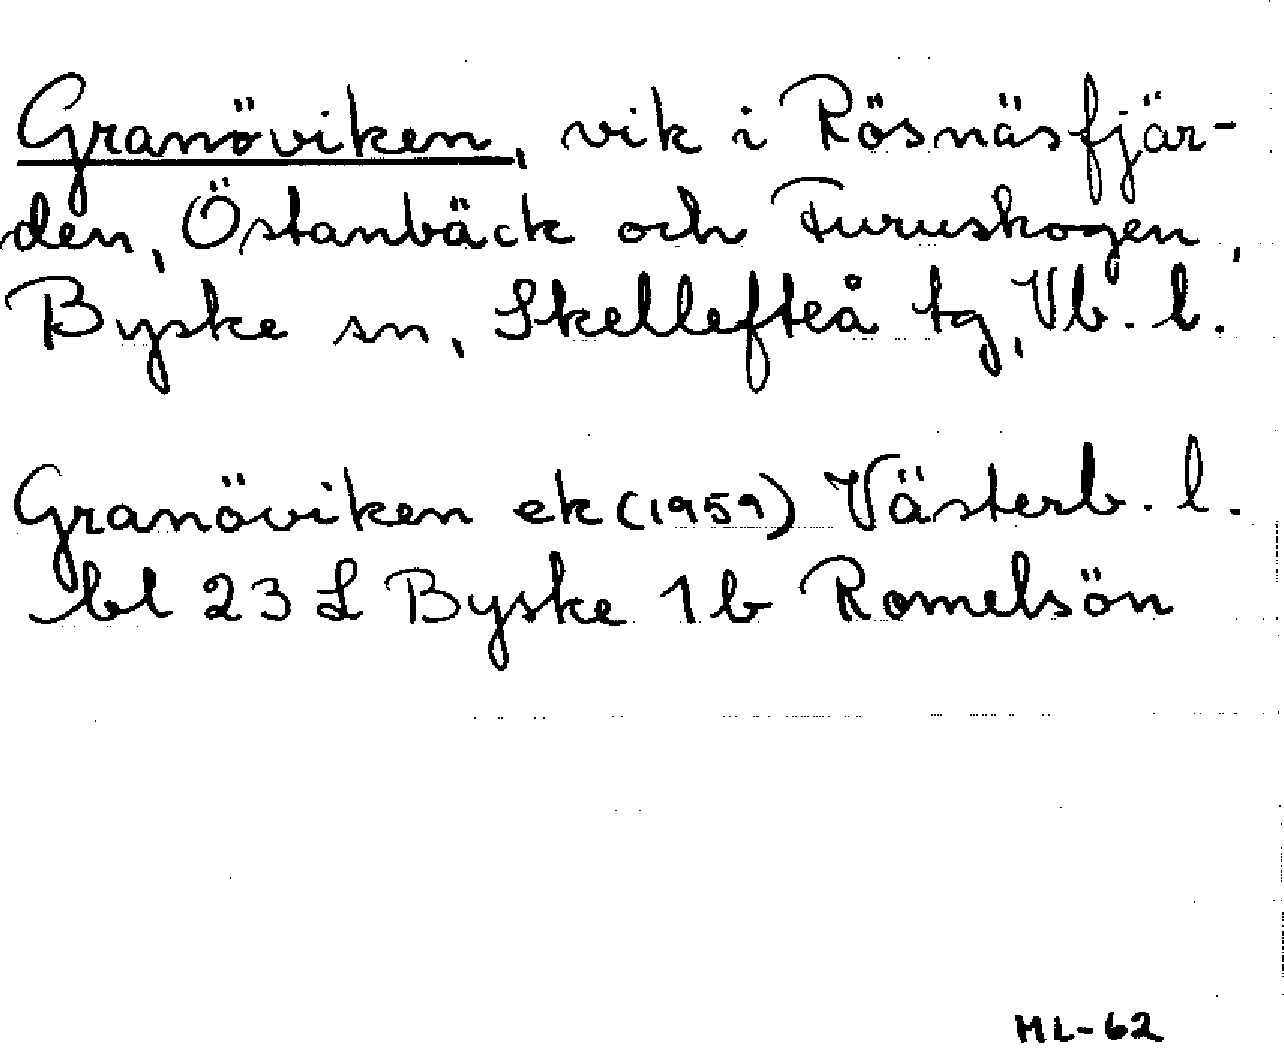 Granöviken, vik i Rösnäsfjär-
den, Östanbäck och Furuskogen,
Byske sn, Skellefteå tg, Vb. l.
Granöviken ek (1959) Västerb. l.
bl 23 L Byske 1 b Romelsön
ML-62